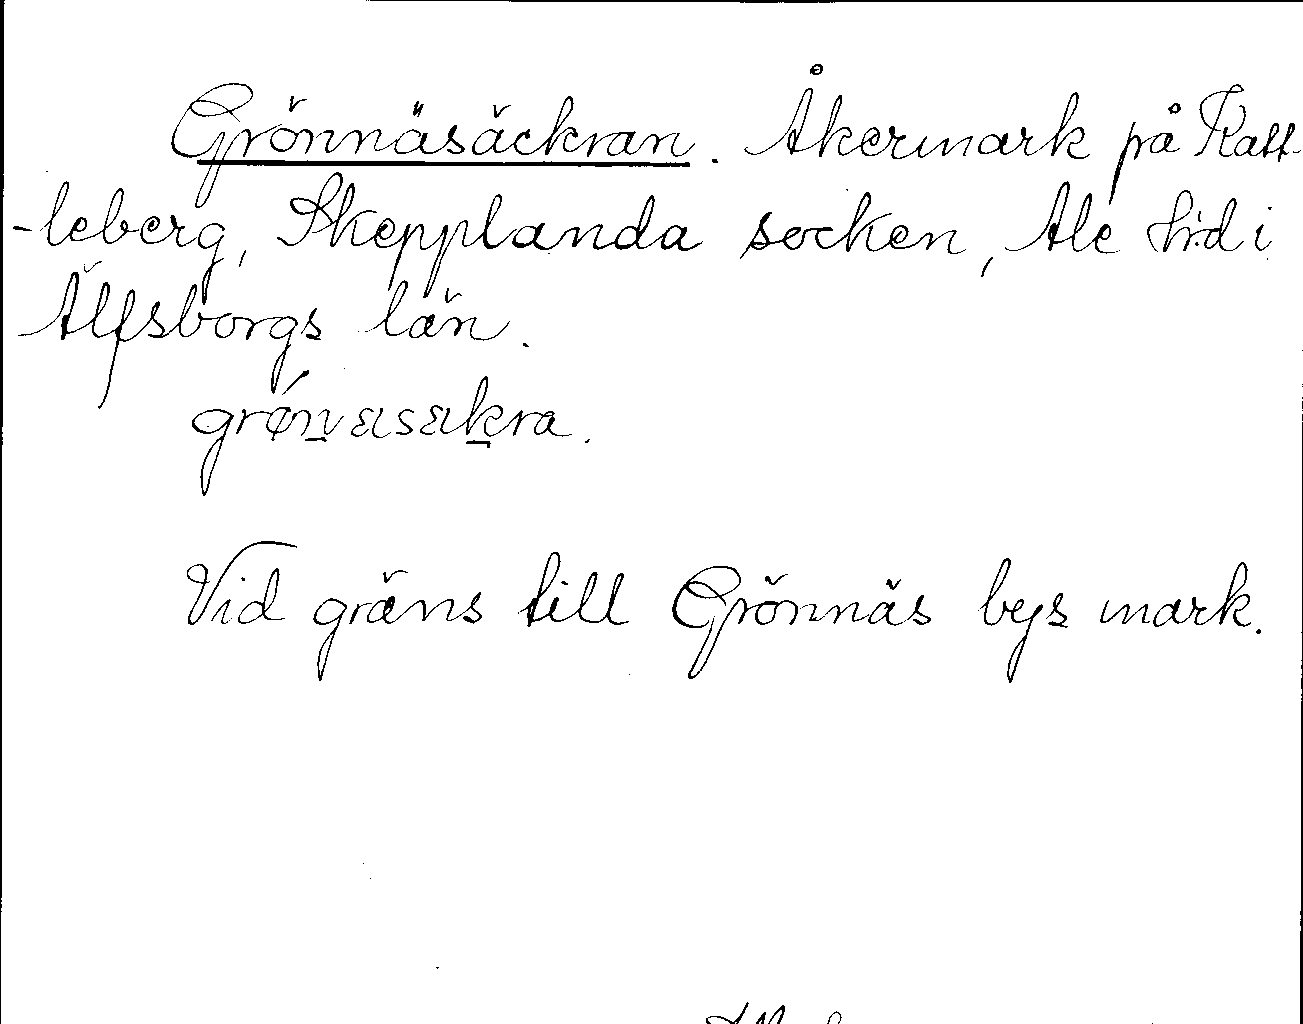 Grönnäsäckran. Åkermark på Katt-
-leberg, Skepplanda socken, Ale h:d i
Älfsborgs län.
Vid gräns till Grönnäs bys mark.